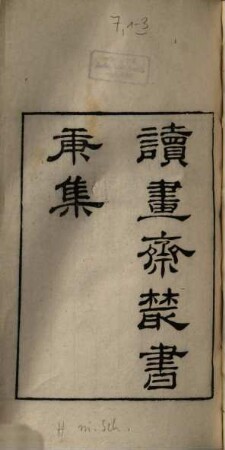 7,1-3
讀畫齋叢書
庚集